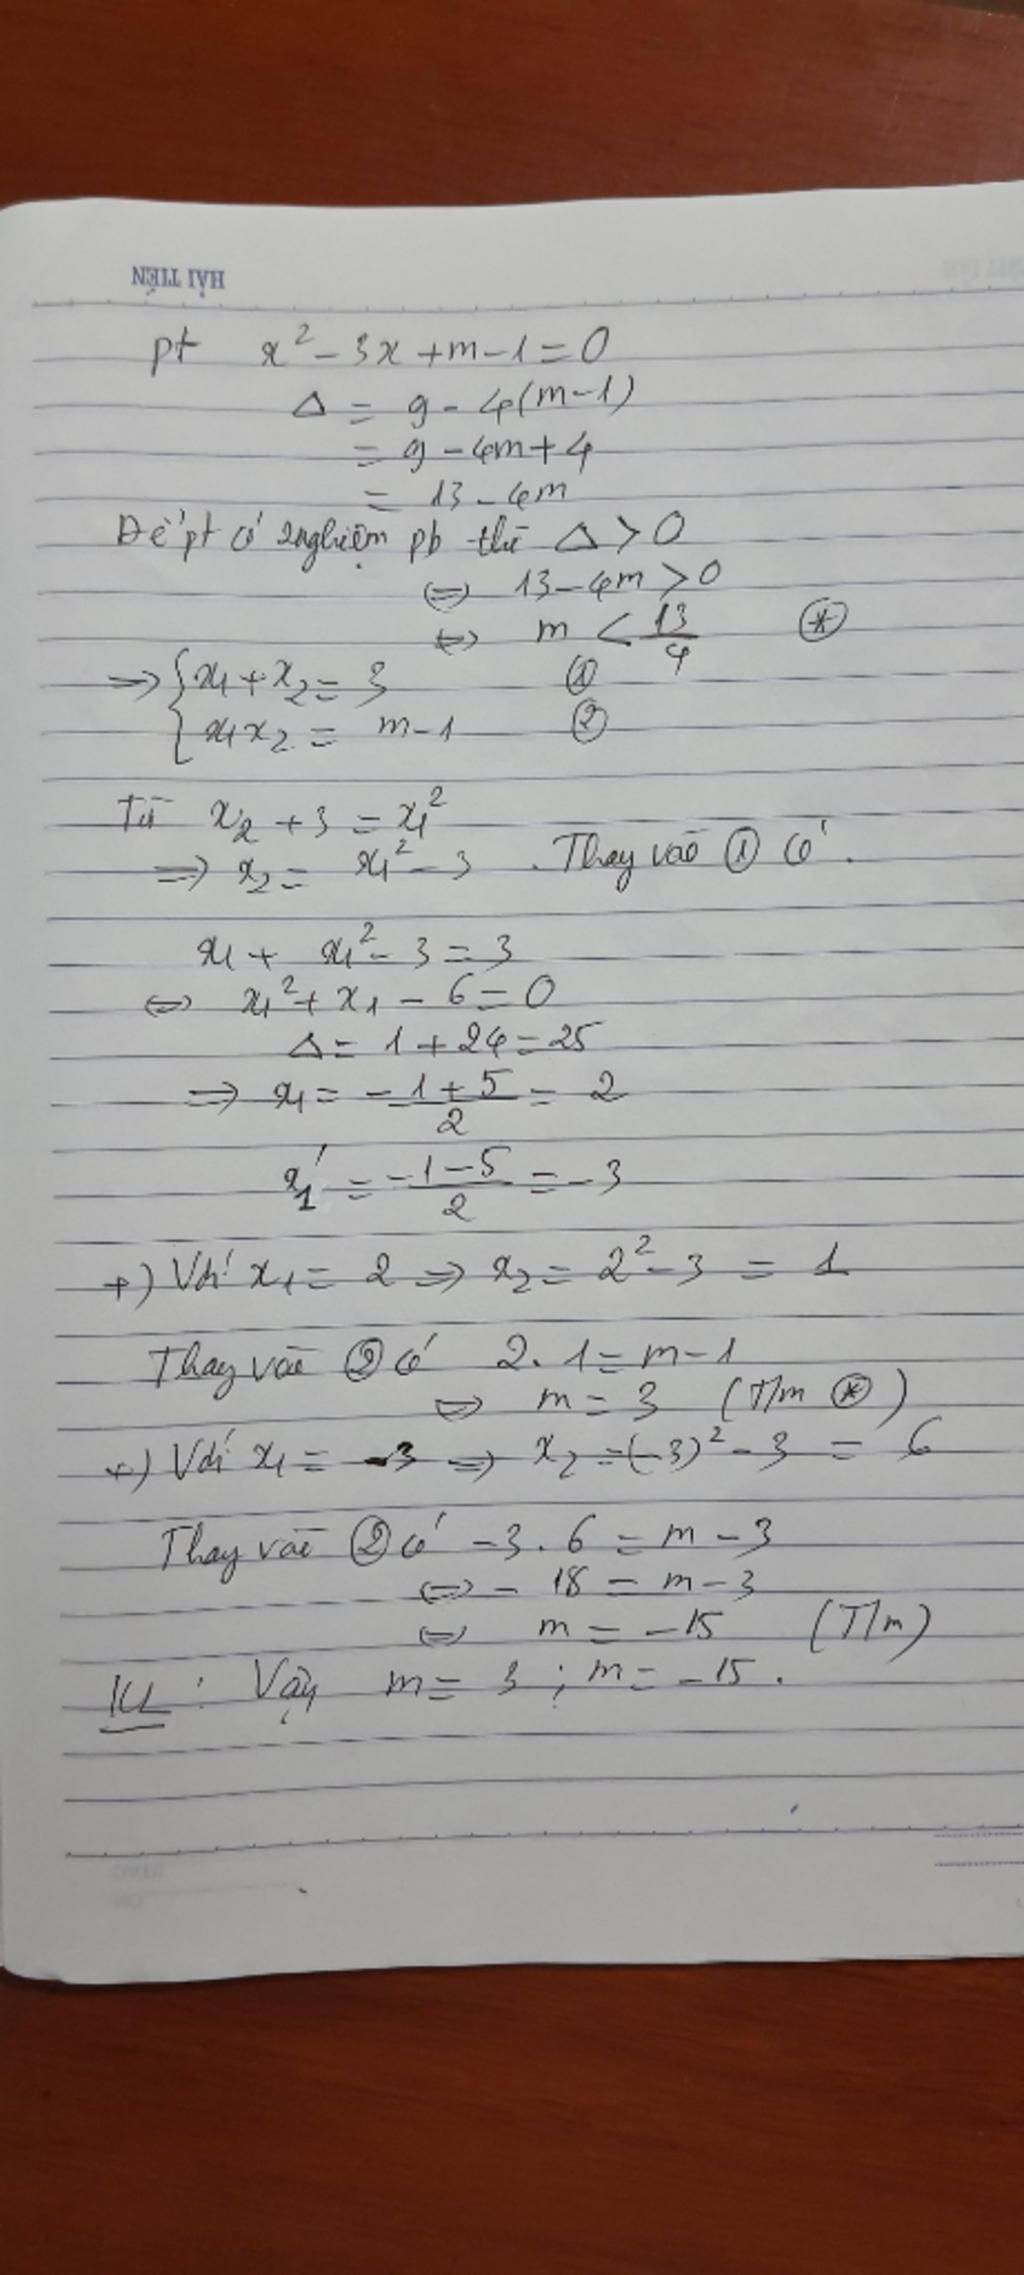 HẢI TIẾN
pt x² - 3x + m - 1 = 0
Δ = 9 - 4(m-1)
= 9 - 4m + 4
= 13 - 4m
Để pt có 2 nghiệm pb thì Δ > 0
⇔ 13 - 4m > 0
⇔ m < 13/4 (*)
⇒ { x₁ + x₂ = 3 ①
x₁x₂ = m - 1 ②
Từ x₂ + 3 = x₁²
⇒ x₂ = x₁² - 3 . Thay vào ① có .
x₁ + x₁² - 3 = 3
⇔ x₁² + x₁ - 6 = 0
Δ = 1 + 24 = 25
⇒ x₁ = (-1 + 5)/2 = 2
x₁' = (-1 - 5)/2 = -3
+) Với x₁ = 2 ⇒ x₂ = 2² - 3 = 1
Thay vào ② có 2. 1 = m - 1
⇔ m = 3 (T/m (*))
+) Với x₁ = -3 ⇒ x₂ = (-3)² - 3 = 6
Thay vào ② có -3 . 6 = m - 3
⇔ - 18 = m - 3
⇔ m = -15 (T/m)
KL : Vậy m = 3 ; m = -15 .